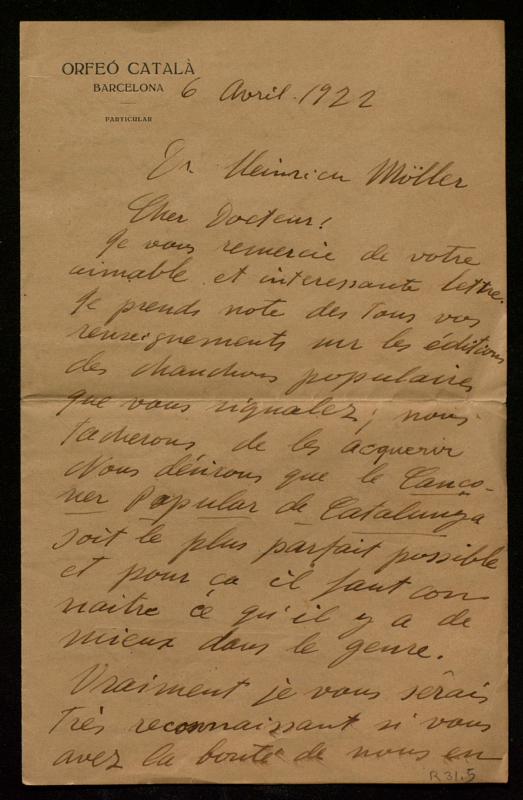 ORFEÓ CATALÀ
BARCELONA
PARTICULAR
6 Avril. 1922
Dr Heinrich Möller
Cher Docteur!
Je vous remercie de votre
aimable et interessante lettre.
Je prends note des tous vos
renseignements sur les éditions
des chanchons populaires
que vous signalez; nous
tacherons de les acquerir
Nous désirons que le Canço-
ner Popular de Catalunya
soit le plus parfait possible
et pour ça il faut con
naitre ce qu'il y a de
mieux dans le genre.
Vraiment je vous sèrais
très reconnaissant si vous
avez la bonté de nous en
R31.5